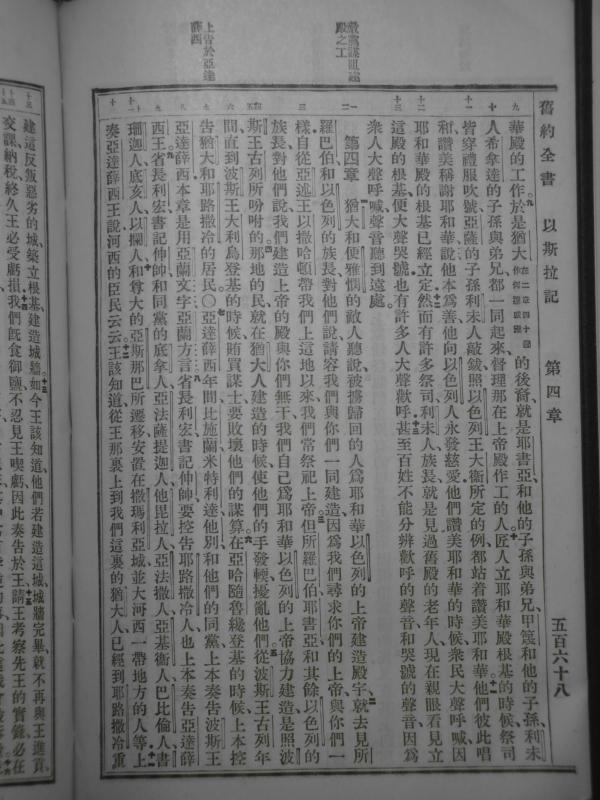 舊約全書　以斯拉記　第四章　五百六十八
華殿的工作於是猶大的後裔就是耶書亞和他的子孫與弟兄甲篾和他的子孫利未
人希拿達的子孫與弟兄都一同起來督理那在上帝殿作工的人匠人立耶和華殿根基的時候祭司
皆穿禮服吹號亞薩的子孫利未人敲鈸照以色列王大衛所定的例都站着讚美耶和華他們彼此唱
和讚美稱謝耶和華說他本爲善他向以色列人永發慈愛他們讚美耶和華的時候衆民大聲呼喊因
耶和華殿的根基已經立定然而有許多祭司利未人族長就是見過舊殿的老年人現在親眼看見立
這殿的根基便大聲哭號也有許多人大聲歡呼甚至百姓不能分辨歡呼的聲音和哭號的聲音因爲
衆人大聲呼喊聲音聽到遠處
第四章　猶大和便雅憫的敵人聽說被擄歸回的人爲耶和華以色列的上帝建造殿宇就去見所
羅巴伯和以色列的族長對他們說請容我們與你們一同建造因爲我們尋求你們的上帝與你們一
樣自從亞述王以撒哈頓帶我們上這地以來我們常祭祀上帝但所羅巴伯耶書亞和其餘以色列的
族長對他們說我們建造上帝的殿與你們無干我們自己爲耶和華以色列的上帝協力建造是照波
斯王古列所吩咐的那地的民就在猶大人建造的時候使他們的手發輭擾亂他們從波斯王古列年
間直到波斯王大利烏登基的時候賄買謀士要敗壞他們的謀算在亞哈隨魯纔登基的時候上本控
告猶大和耶路撒冷的居民〇亞達薛西年間比施蘭米特利達他別和他們的同黨上本奏告波斯王
亞達薛西本章是用亞蘭文字亞蘭方言省長利宏書記伸帥要控告耶路撒冷人也上本奏告亞達薛
西王省長利宏書記伸帥和同黨的底拿人亞法薩提迦人他毘拉人亞法撒人亞基衞人巴比倫人書
珊迦人底亥人以攔人和尊大的亞斯那巴所遷移安置在撒瑪利亞城並大河西一帶地方的人等上
奏亞達薛西王說河西的臣民云云王該知道從王那裏上到我們這裏的猶大人已經到耶路撒冷重
建造這反叛惡劣的城築立根基建造城牆如今王該知道他們若建造這城城牆完畢就不再與王進貢
交課納稅終久王必受虧損我們旣食御鹽不忍見王喫虧因此奏告於王請王考察先王的實錄必在
敵黨謀阻造
殿之工
上告於亞達
薛西